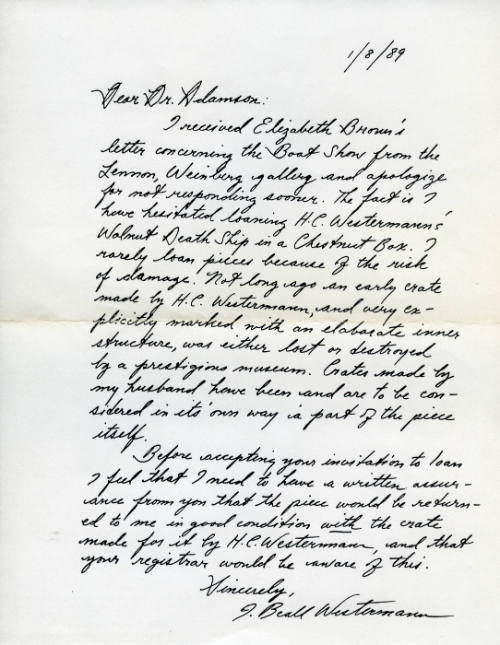 1/8/89
Dear Dr. Adamson:
I received Elizabeth Brown's
letter concerning the Boat Show from the
Lennon, Weinberg gallery and apologize
for not responding sooner. The fact is I
have hesitated loaning H.C. Westermann's
Walnut Death Ship in a Chestnut Box. I
rarely loan pieces because of the risk
of damage. Not long ago an early crate
made by H.C. Westermann, and very ex-
plicitly marked with an elaborate inner
structure, was either lost or destroyed
by a prestigious museum. Crates made by
my husband have been and are to be con-
sidered in its' own way a part of the piece
itself.
Before accepting your invitation to loan
I feel that I need to have a written assur-
ance from you that the piece would be return-
ed to me in good condition with the crate
made for it by H.C. Westermann, and that
your registrar would be aware of this.
Sincerely,
J. Beall Westermann